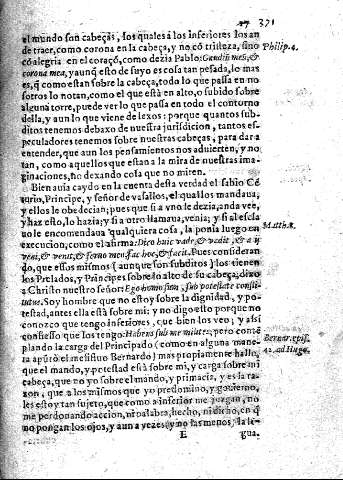 371
el mundo son cabeças, los quales à los inferiores los an
de traer, como corona en la cabeça, y no cõ tristeza, sino
cõ alegria en el coraçõ, como dezia Pablo: Gaudiũ meũ, & Philip. 4.
corona mea, y aunq̃ esto de suyo es cosa tan pesada, lo mas
es, q̃ como estan sobre la cabeça, todo lo que passa en no
sotros lo notan, como el que está en alto, o subido sobre
alguna torre, puede ver lo que passa en todo el contorno
della, y aun lo que viene de lexos: porque quantos sub
ditos tenemos debaxo de nuestra jurisdicion, tantos es-
peculadores tenemos sobre nuestras cabeças, para dar a
entender, que aun los pensamientos nos aduierten, y no
tan, como aquellos que estan a la mira de nuestras ima-
ginaciones, no dexando cosa que no miren.
Bien auia caydo en la cuenta desta verdad el sabio Cẽ
turio, Principe, y señor de vasallos, el qual los mandaua,
y ellos le obedecian; pues que si a vno le dezia, anda vee,
y haz esto, lo hazia; y si a otro llamaua, venia; y si al escla
uo le encomendaua qualquiera cosa, la ponia luego en Matth. 8.
execucion, como el afirma: Dico huic vade, & vadit, & alij
veni, & venit, & seruo meo fac hoc, & facit. Pues consideran
do, que essos mismos (aunque son subditos) los tienen
los Prelados, y Principes sobre lo alto de su cabeça, dixo
a Christo nuestro señor: Ego homo sum, sub potestate consti
tutus. Soy hombre que no estoy sobre la dignidad, y po-
testad, antes ella está sobre mi; y no digo esto porque no
conozco que tengo inferiores, que bien los veo; y assi
confiesso que los tengo: Habens sub me milites; pero contẽ
plando la carga del Principado (como en alguna mane- Bernar. epis.
ra apuró el melifluo Bernardo) mas propiamente hallo, 42. ad Hug.
que el mando, y potestad está sobre mi, y carga sobre mi
cabeça, que no yo sobre el mando, y primacia, y es la ra-
zon, que a los mismos que yo predomino, y gouierno,
les estoy tan sujeto, que como a inferior me juzgan, no
me perdonando accion, ni palabra, hecho, ni dicho, en q̃
no pongan los ojos, y aun a vezes y no las menos, la lẽ-
E gua.